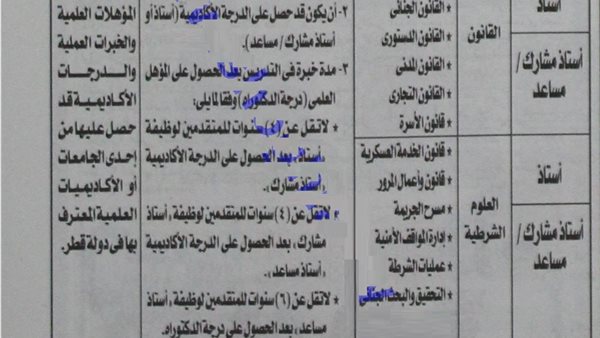 أستاذ
أستاذ مشارك /
مساعد
القانون
* القانون الجنائى
* القانون الدستورى
* القانون المدنى
* القانون التجارى
* قانون الأسرة
أستاذ
أستاذ مشارك /
مساعد
العلوم
الشرطية
* قانون الخدمة العسكرية
* قانون وأعمال المرور
* مسرح الجريمة
* إدارة المواقف الأمنية
* عمليات الشرطة
* التحقيق والبحث الجنائى
٢- أن يكون قد حصل على الدرجة الأكاديمية (أستاذ أو
أستاذ مشارك / مساعد).
٣- مدة خبرة فى التدريس بعد الحصول على المؤهل
العلمى (درجة الدكتوراه) وفقا لما يلى:
* لا تقل عن (٤) سنوات للمتقدمين لوظيفة
«أستاذ» بعد الحصول على الدرجة الأكاديمية
«أستاذ مشارك».
* لا تقل عن (٤) سنوات للمتقدمين لوظيفة «أستاذ
مشارك» بعد الحصول على الدرجة الأكاديمية
«أستاذ مساعد».
* لا تقل عن (٦) سنوات للمتقدمين لوظيفة «أستاذ
مساعد» بعد الحصول على درجة الدكتوراه.
المؤهلات العلمية
والخبرات العملية
والدرجات
الأكاديمية قد
حصل عليها من
إحدى الجامعات
أو الأكاديميات
العلمية المعترف
بها فى دولة قطر.